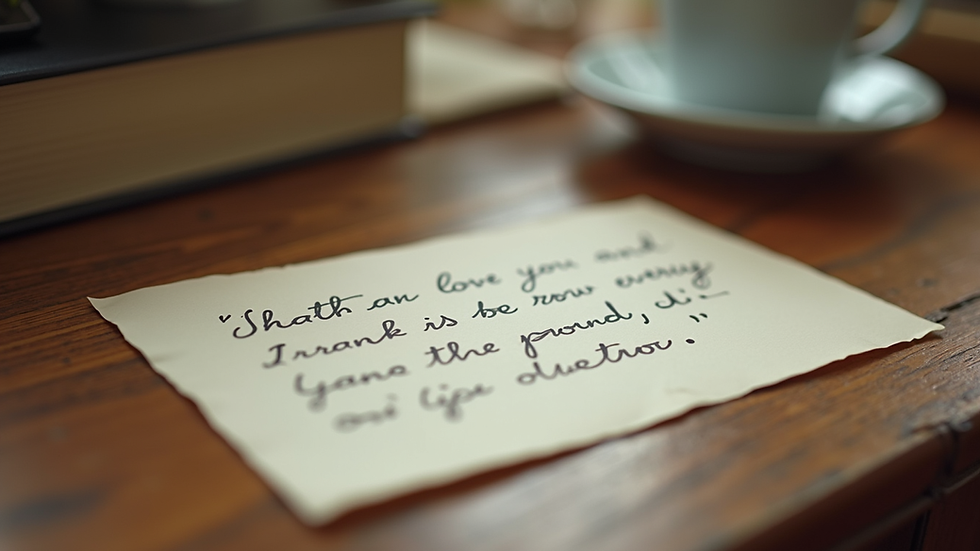 "Shath an love you and
Irrank is be row every
Yane the pround, di:–
oni lipe duetror."